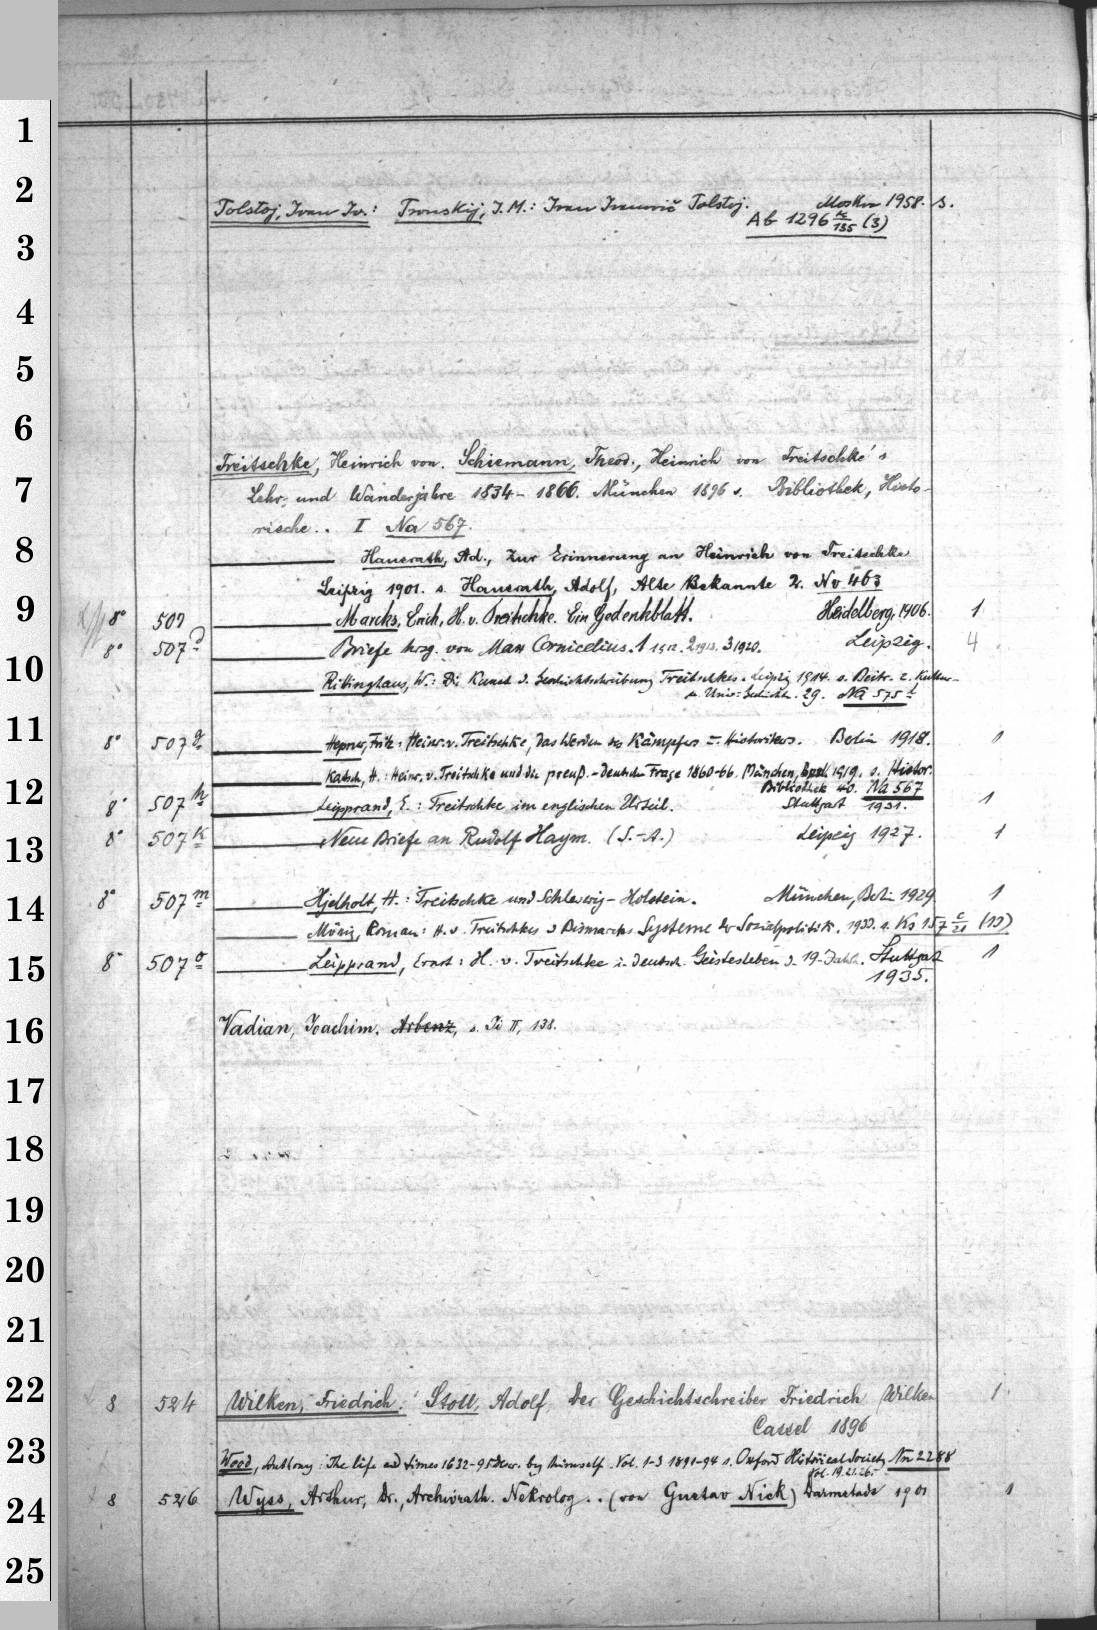 1
2
Tolstoj, Ivan Iv.: Tronskij, I.M.: Ivan Ivanovič Tolstoj. Moskva 1958. s.
Ab 1296 135 (3)
3
4
5
6
Treitschke, Heinrich von. Schiemann, Theod., Heinrich von Treitschke's
7
Lehr- und Wanderjahre 1834-1866. München 1896 s. Bibliothek, Histo-
rische.. I Na 567.
8
Hausrath, Ad., Zur Erinnerung an Heinrich von Treitschke
Leipzig 1901. s. Hausrath, Adolf, Alte Bekannte 2. Nv 463
9
8° 507 Marcks, Erich, H. v. Treitschke. Ein Gedenkblatt. Heidelberg, 1906. 1
8° 507 d Briefe hrsg. von Max Cornicelius. 1 1912. 2 1913. 3 1920. Leipzig. 4
10
Ribinghaus, W.: Die Kunst d. Geschichtschreibung Treitschkes. Leipzig 1914. s. Beitr. z. Kultur-
u. Univ.-Geschichte. 29. Na 575 t
11
8° 507 g Hepner, Fritz: Heinr. v. Treitschke, das Werden des Kämpfers u. Historikers. Berlin 1918. 1
Katsch, H.: Heinr. v. Treitschke und die preuß.-deutsche Frage 1860-66. München, Berl. 1919. s. Histor.
Bibliothek 40. Na 567
12
8° 507 h Leipprand, E.: Treitschke im englischen Urteil. Stuttgart 1931. 1
13
8° 507 k Neue Briefe an Rudolf Haym. (S.-A.) Leipzig 1927. 1
14
8° 507 m Hjelholt, H.: Treitschke und Schleswig-Holstein. München, Berlin 1929 1
Müsig, Roman: H. v. Treitschkes u Bismarcks Systeme der Sozialpolitik. 1933. s. Ks 157 c/21 (13)
15
8° 507 o Leipprand, Ernst: H. v. Treitschke i. deutsch. Geistesleben d. 19. Jahrh. Stuttgart 1
1935.
16
Vadian, Joachim. Arbenz, s. II, 138.
17
18
19
20
21
22
8 524 Wilken, Friedrich: Stoll, Adolf, Der Geschichtschreiber Friedrich Wilken 1
Cassel 1896
23
Wood, Anthony: The life and times 1632-95 descr. by himself. Vol. 1-3 1891-94 s. Oxford Historical Society Nn 2288
Vol. 19. 21. 26.
24
8 526 Wyss, Arthur, Dr., Archivrath. Nekrolog.. (von Gustav Nick) Darmstadt 1901 1
25